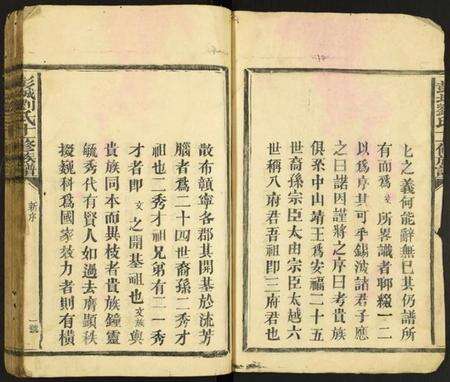 上之義何能辭無已其仍譜所
有而爲文所畧識者聊綴一二
以爲序其可乎錫波諸君子應
之曰諾因謹將之序曰考貴族
俱系中山靖王爲安福二十五
世裔孫宗臣太由宗臣太越六
世稱八府君吾祖即三府君也
散布贛寧各郡其開基於流芳
腦者爲二十四世裔孫二秀才
祖也二秀才祖兄弟有二一秀
才者即文之開基祖也文族與
貴族同本而異枝者貴族鐘靈
毓秀代有賢人如過去膺顯秩
掇巍科爲國家效力者則有橫
彭城劉氏十修族譜
新序
二號